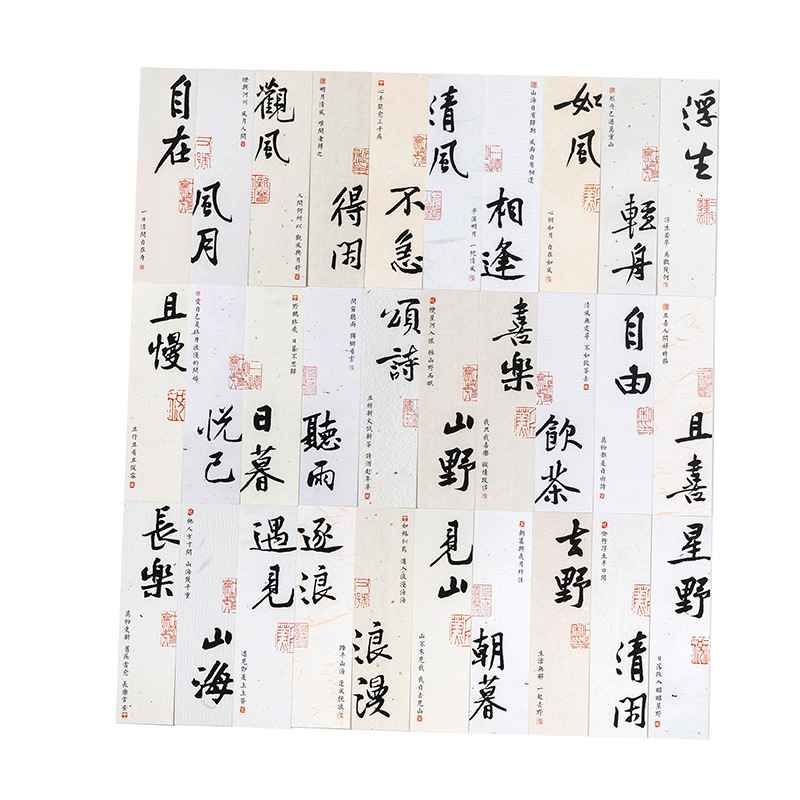 自在
一日清閒自在身
燈與河川 風月人間
風月
觀風
人間何所以 觀風與月舒
明月清風 唯閒者得之
得閑
心平能愈三千疾
不急
清風
半溪明月 一枕清風
山海自有歸期 風雨自有相逢
相逢
如風
心朗如月 自在如風
輕舟已過萬重山
輕舟
浮生
浮生若夢 為歡幾何
且慢
且行且看且從容
愛自己是終身浪漫的開始
悅己
野鶴終飛 日暮不思歸
日暮
閒窗聽雨 看雲
聽雨
頌詩
且將新火試新茶 詩酒趁年華
攬星河入懷 擁山野而眠
山野
喜樂
我只我喜樂
清風無處尋 不如飲茶去
飲茶
自由
萬物都是自由詩
且喜人間好時節
且喜
長樂
萬物更新 舊疾當愈 長樂常安
他人方寸間 山海幾千重
山海
遇見
遇見即是上上簽
逐浪
踏平山海 逐風挽浪
遁入浪漫海海
浪漫
見山
山不來見我 我自去見山
朝暮與歲月并往
朝暮
去野
生活無解 一起去野
偷得浮生半日閒
清閑
星野
日落跌入昭昭星野